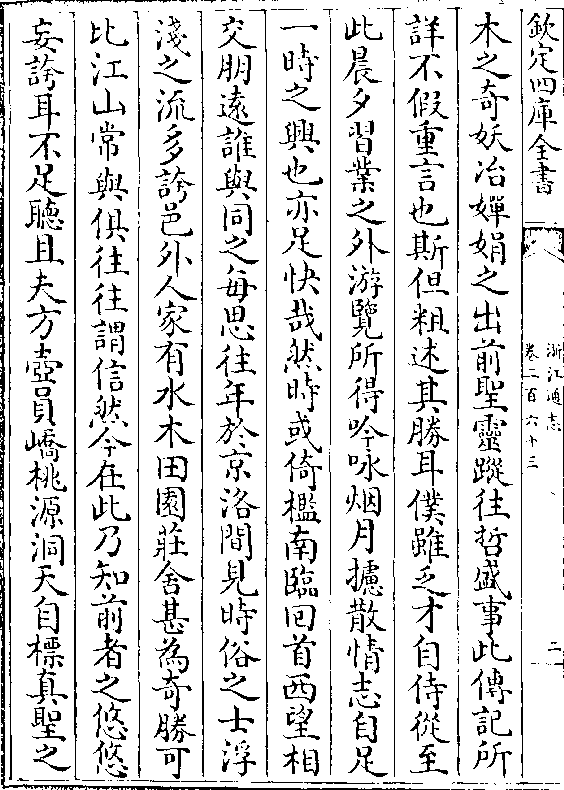 欽定四庫全書
浙江通志
卷二百六十三
木之奇妖冶嬋娟之出前聖靈蹤往哲盛事此傳記所
詳不假重言也斯但粗述其勝耳僕雖乏才自侍從至
此晨夕習業之外游覽所得吟咏烟月攄散情志自足
一時之興也亦足快哉然時或倚檻南臨回首西望相
交朋遠誰與同之每思往年於京洛間見時俗之士浮
淺之流多誇邑外人家有水木田園莊舍甚為奇勝可
比江山常與俱往往謂信然今在此乃知前者之悠悠
妄誇耳不足聽且夫方壺員嶠桃源洞天自標真聖之